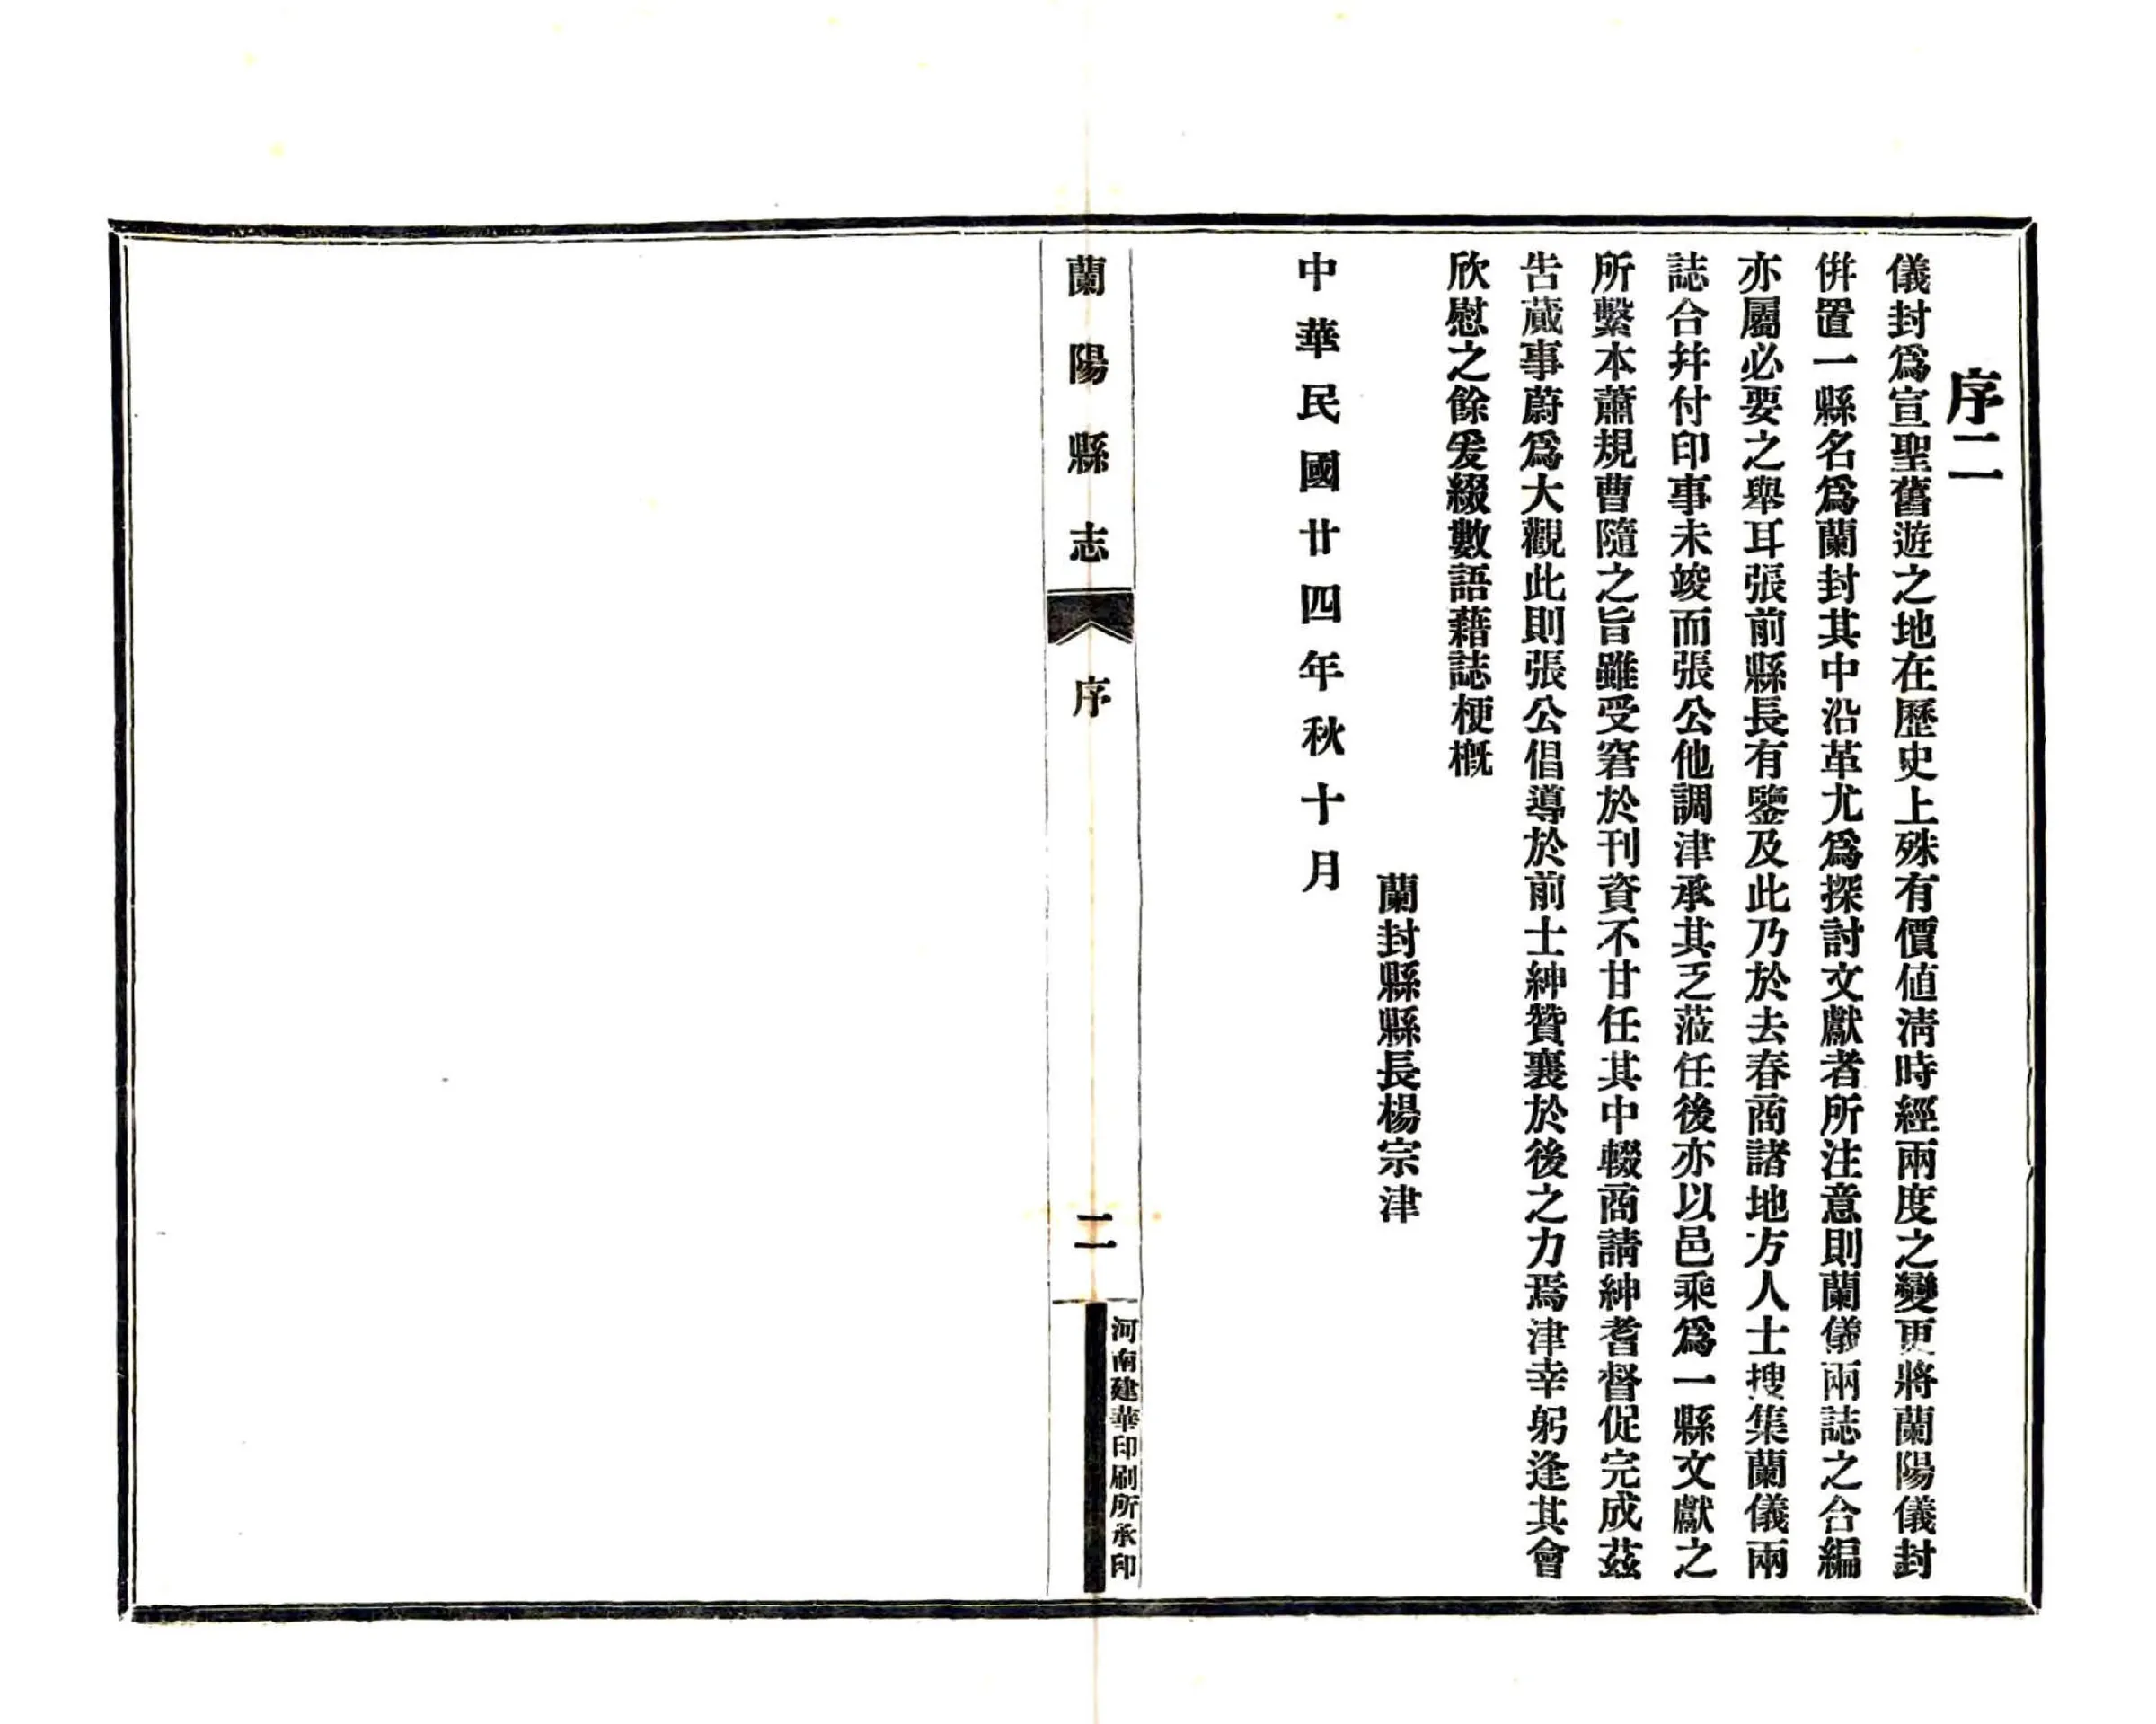 序二
儀封爲宣聖舊遊之地在歷史上殊有價値淸時經兩度之變更將蘭陽儀封
併置一縣名爲蘭封其中沿革尤爲探討文獻者所注意則蘭儀兩誌之合編
亦屬必要之舉耳張前縣長有鑒及此乃於去春商諸地方人士搜集蘭儀兩
誌合幷付印事未竣而張公他調津承其乏蒞任後亦以邑乘爲一縣文獻之
所繫本蕭規曹隨之旨雖受窘於刊資不甘任其中輟商請紳耆督促完成茲
吿蕆事蔚爲大觀此則張公倡導於前士紳贊襄於後之力焉津幸躬逢其會
欣慰之餘爰綴數語藉誌梗槪
蘭封縣縣長楊宗津
中華民國廿四年秋十月
蘭陽縣志
序
二
河南建華印刷所承印